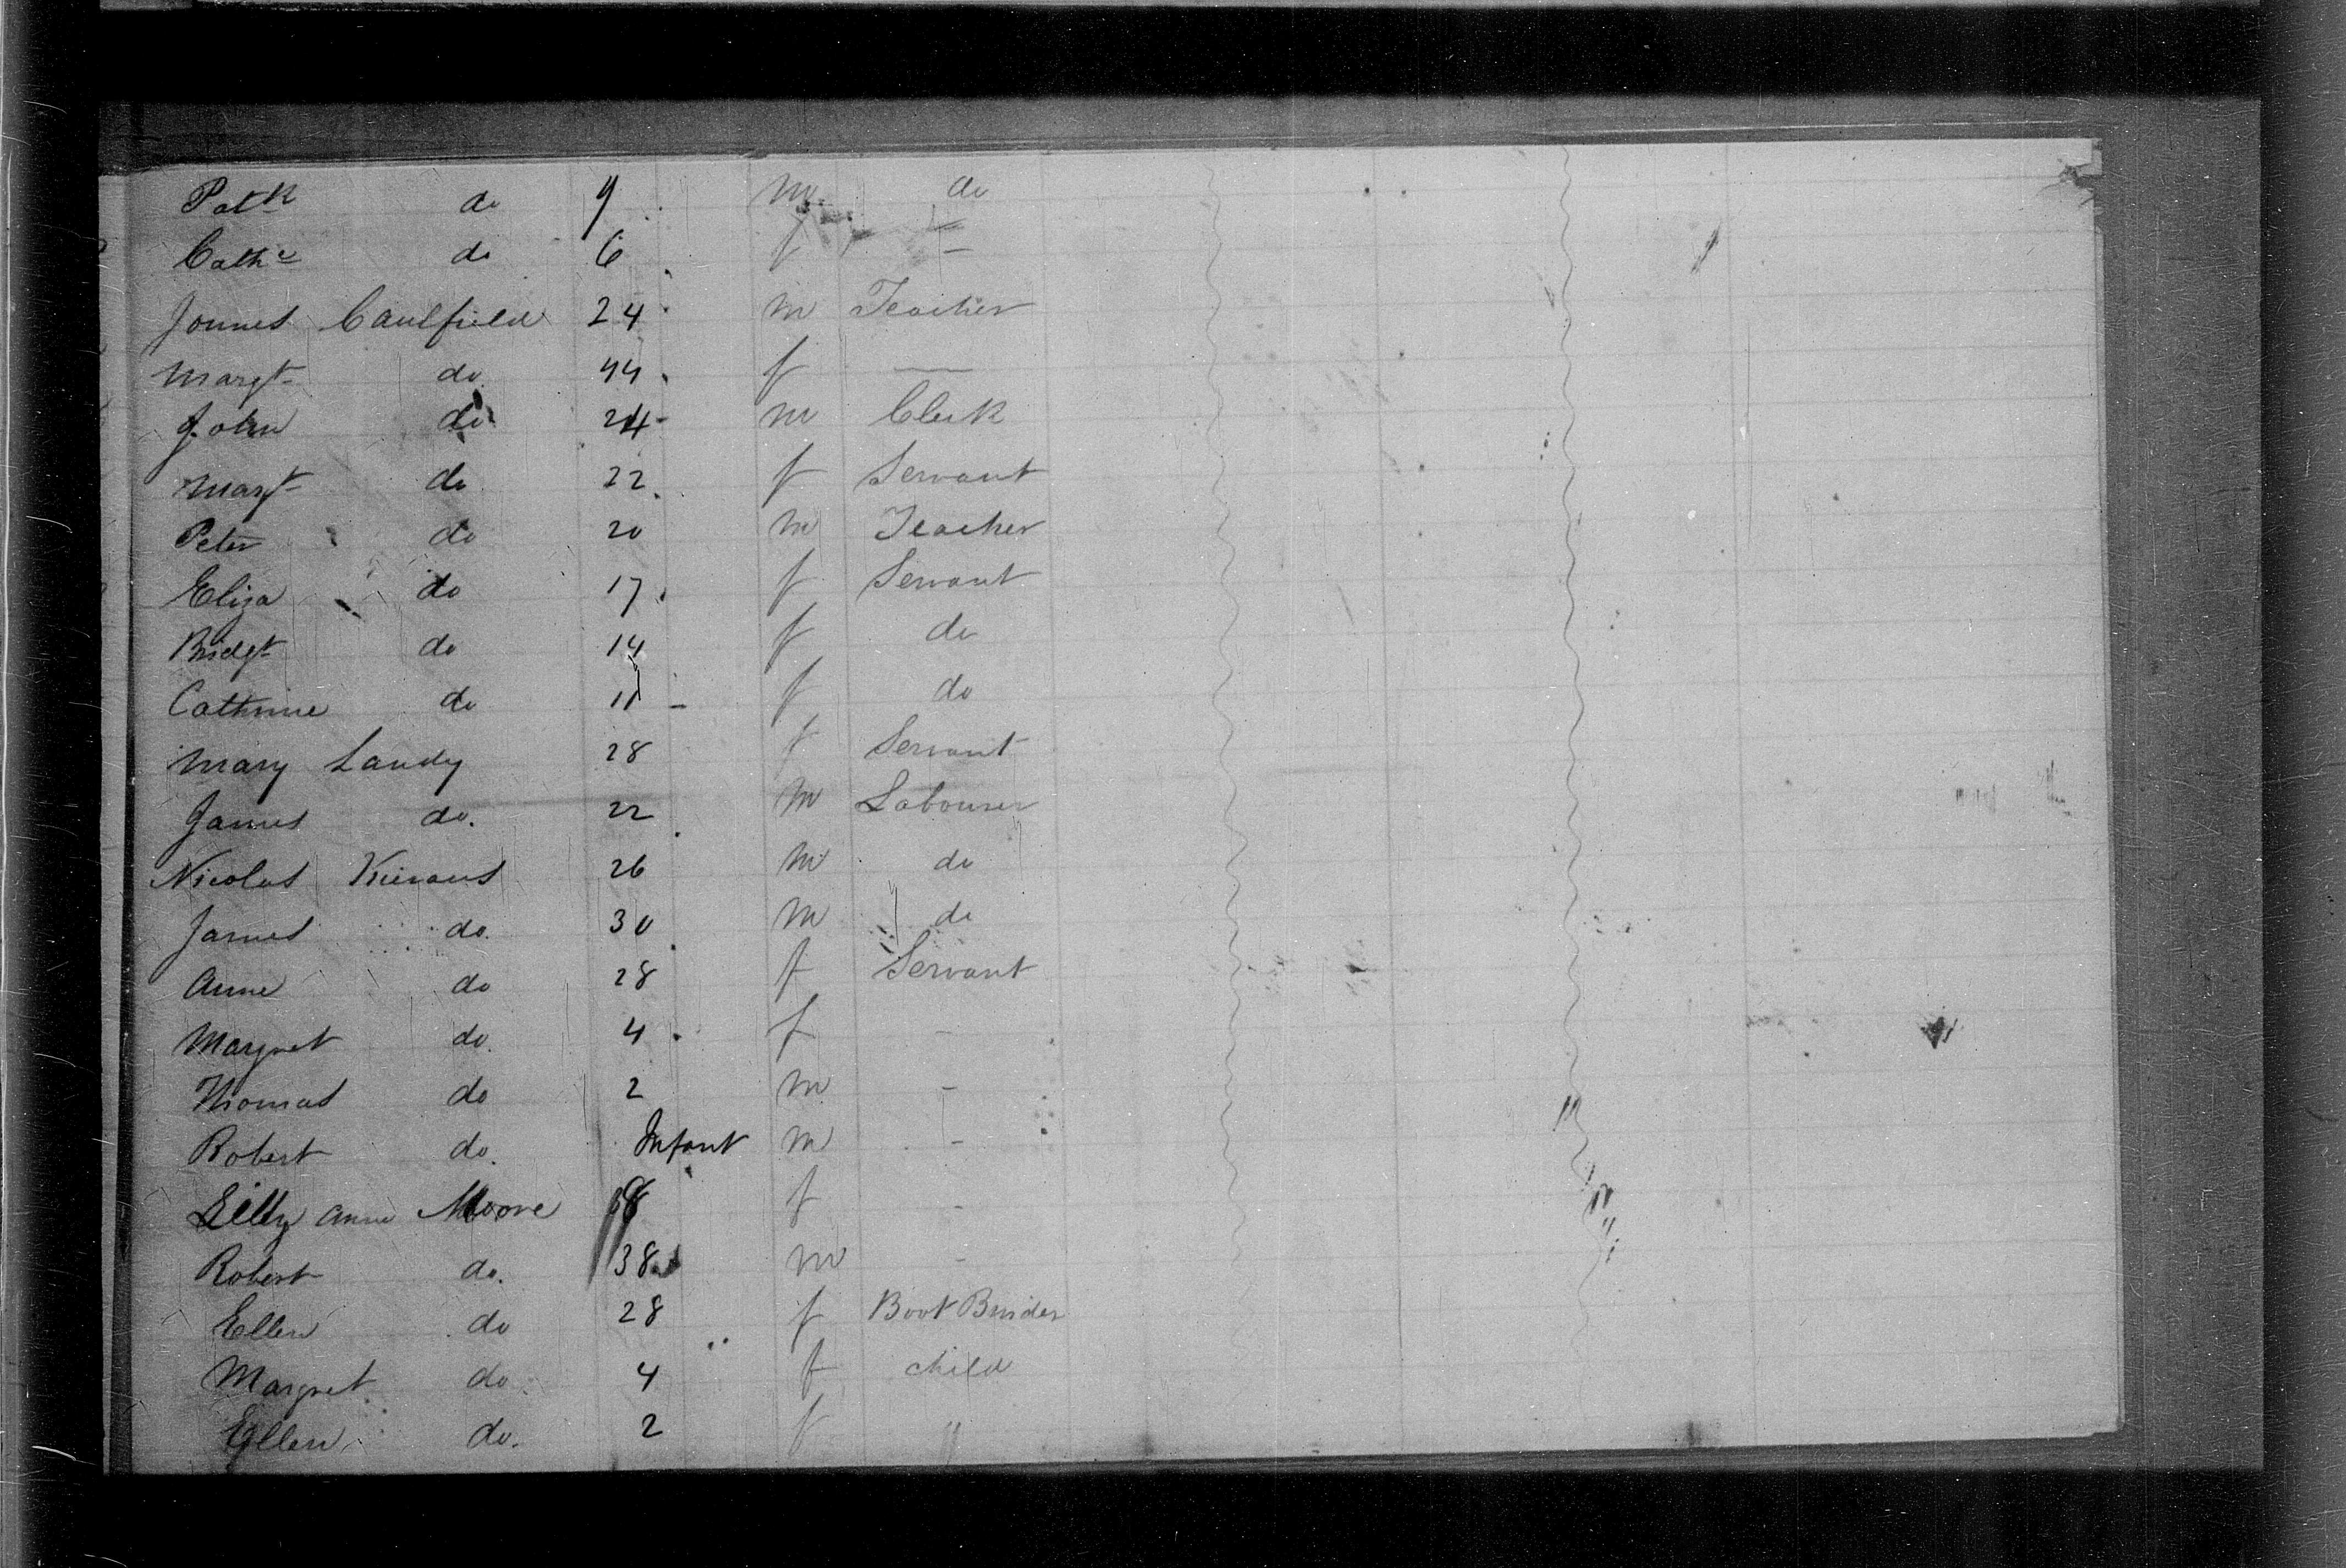 Patk do 9 m do
Cathe do 6 f -
James Caulfield 24 m Teacher
Margt do 44 f —
John do 24 m Clerk
Margt do 22 f Servant
Peter do 20 m Teacher
Eliza do 17 f Servant
Bridgt do 14 f do
Cathrine do 11 f do
Mary Landy 28 f Servant
James do. 22 m Labourer
Nicolas Kierans 26 m do
James do. 30 m do
Anne do 28 f Servant
Margret do. 4 f -
Thomas do 2 m -
Robert do. Infant m -
Lilly Anne Moore f -
Robert do. 38 m -
Ellen do 28 f Boot Binder
Margret do 4 f child
Ellen do. 2 f "